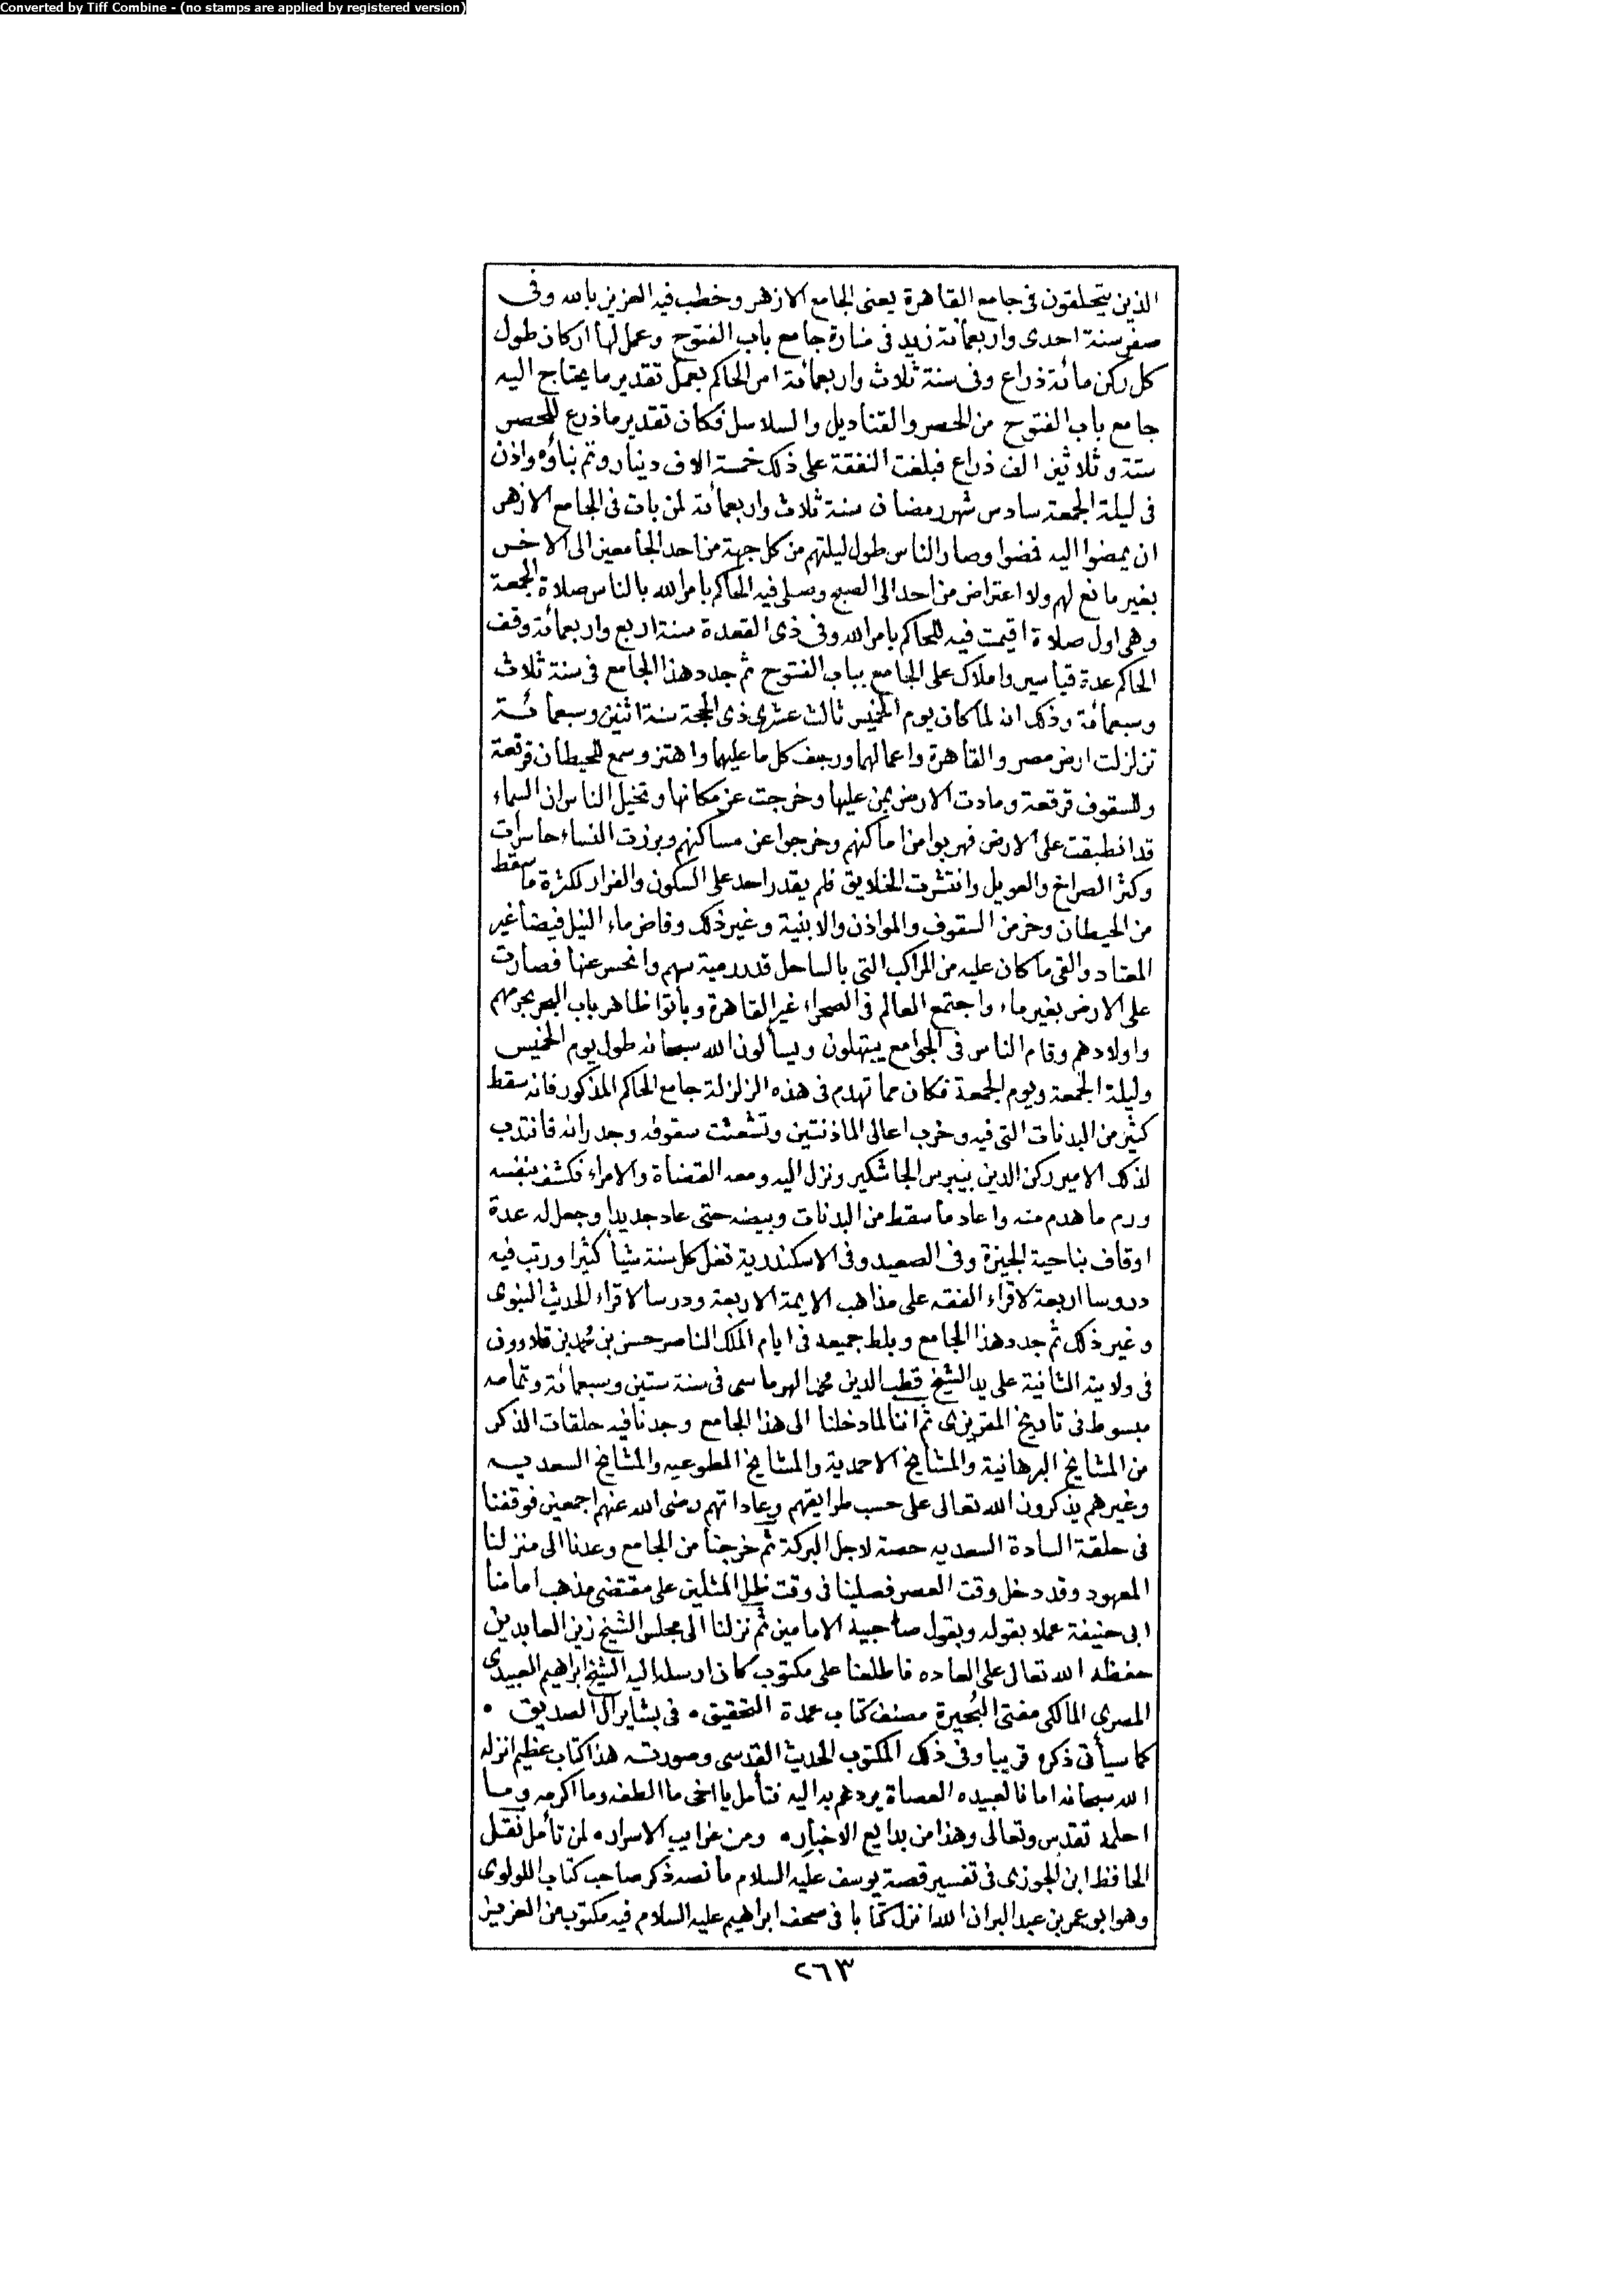 Converted by Tiff Combine - (no stamps are applied by registered version)
الذين يتحلقون فى جامع القاهرة يعنى الجامع الازهر وخطب فيه العزيز بالله وفى
صفر سنة احدى واربعمائة زيد فى منارة جامع باب الفتوح وعمل لها اركان طول
كل ركن مائة ذراع وفى سنة ثلاث واربعمائة امر الحاكم بعمل تقدير ما يحتاج اليه
جامع باب الفتوح من الحصر والقناديل والسلاسل فكان تقدير ماذرع للحصر
ستة وثلاثين الف ذراع فبلغت النفقة على ذلك خمسة الاف دينار وتم بناؤه واذن
فى ليلة الجمعة سادس شهر رمضان سنة ثلاث واربعمائة لمن بات فى الجامع الازهر
ان يمضوا اليه فمضوا وصار الناس طول ليلتهم من كل جهة من احد الجامعين الى الاخر
بغير مانع لهم ولا اعتراض من احد الى الصبح وصلى فيه الحاكم بامر الله بالناس صلاة الجمعة
وهى اول صلاة اقيمت فيه للحاكم بامر الله وفى ذى القعدة سنة اربع واربعمائة وقف
الحاكم عدة قياسير واملاك على الجامع بباب الفتوح ثم جدد هذا الجامع فى سنة ثلاث
وسبعمائة وذلك انه لما كان يوم الخميس ثالث عشرى ذى الحجة سنة اثنين وسبعمائة
تزلزلت ارض مصر والقاهرة واعمالهما ورجف كل ما عليهما واهتز وسمع للحيطان قرقعة
وللسقوف قرقعة ومادت الارض بمن عليها وخرجت عن مكانها وتخيل الناس ان السماء
قد انطبقت على الارض فهربوا من اماكنهم وخرجوا عن مساكنهم وبرزت النساء حاسرات
وكثر الصراخ والعويل وانتشرت الخلايق فلم يقدر احد على السكون والفرار لكثرة ما سقط
من الحيطان وخر من السقوف والمواذن والابنية وغير ذلك وفاض ماء النيل فيضا غير
المعتاد والقى ما كان عليه من المراكب التى بالساحل قدر رمية سهم وانحسر عنها فصارت
على الارض بغير ماء واجتمع العالم فى الصحراء غير القاهرة وباتوا ظاهر باب البحر بحرمهم
واولادهم وقام الناس فى الجوامع يبتهلون ويسألون الله سبحانه طول يوم الخميس
وليلة الجمعة ويوم الجمعة فكان مما تهدم فى هذه الزلزلة جامع الحاكم المذكور فانه سقط
كثير من البدنات التى فيه وخرب اعالى الماذنتين وتشعثت سقوفه وجدرانه فانتدب
لذلك الامير ركن الدين بيبرس الجاشنكير ونزل اليه ومعه القضاة والامراء فكشفه بنفسه
ورم ما هدم منه واعاد ما سقط من البدنات وبيضه حتى عاد جديدا وجعل له عدة
اوقاف بناحية الجيزة وفى الصعيد وفى الاسكندرية تغل كل سنة شيأ كثيرا ورتب فيه
دروسا اربعة لاقراء الفقه على مذاهب الايمة الاربعة ودرسا لاقراء الحديث النبوى
وغير ذلك ثم جدد هذا الجامع وبلط جميعه فى ايام الملك الناصر حسن بن محمد بن قلاوون
فى ولايته الثانية على يد الشيخ قطب الدين محمد الهرماسى فى سنة ستين وسبعمائة وتمامه
مبسوط فى تاريخ المقريزى ثم اننا لما دخلنا الى هذا الجامع وجدنا فيه حلقات الذكر
من المشايخ البرهانية والمشايخ الاحمدية والمشايخ المطوعيه والمشايخ السعديه
وغيرهم يذكرون الله تعالى على حسب طرايقهم وعاداتهم رضى الله عنهم اجمعين فوقفنا
فى حلقة السادة السعديه حصة لاجل البركة ثم خرجنا من الجامع وعدنا الى منزلنا
المعهود وقد دخل وقت العصر فصلينا فى وقت ظل المثلين على مقتضى مذهب امامنا
ابى حنيفة عملا بقوله وبقول صاحبيه الامامين ثم نزلنا الى مجلس الشيخ زين العابدين
حفظه الله تعالى على العاده فاطلعنا على مكتوب كان ارسله اليه الشيخ ابراهيم العبيدى
المصرى المالكى مفتى البُحيرة مصنف كتاب عمدة التحقيق • فى بشاير آل الصديق •
كما سيأتى ذكره قريبا وفى ذلك المكتوب الحديث القدسى وصورته هذا كتاب عظيم انزله
الله سبحانه امانا لعبيده العصاة يردعهم به اليه فتأمل يا اخى ما الطفه وما اكرمه وما
احلمه تقدس وتعالى وهذا من بدايع الاخبار • ومن غرايب الاسرار • لمن تأمل نقل
الحافظ ابن الجوزى فى تفسير قصة يوسف عليه السلام ما نصه ذكر صاحب كتاب اللولوى
وهو ابو عمر بن عبد البر ان الله انزل كتابا فى صحف ابراهيم عليه السلام فيه مكتوب من العزيز
٢٦٣